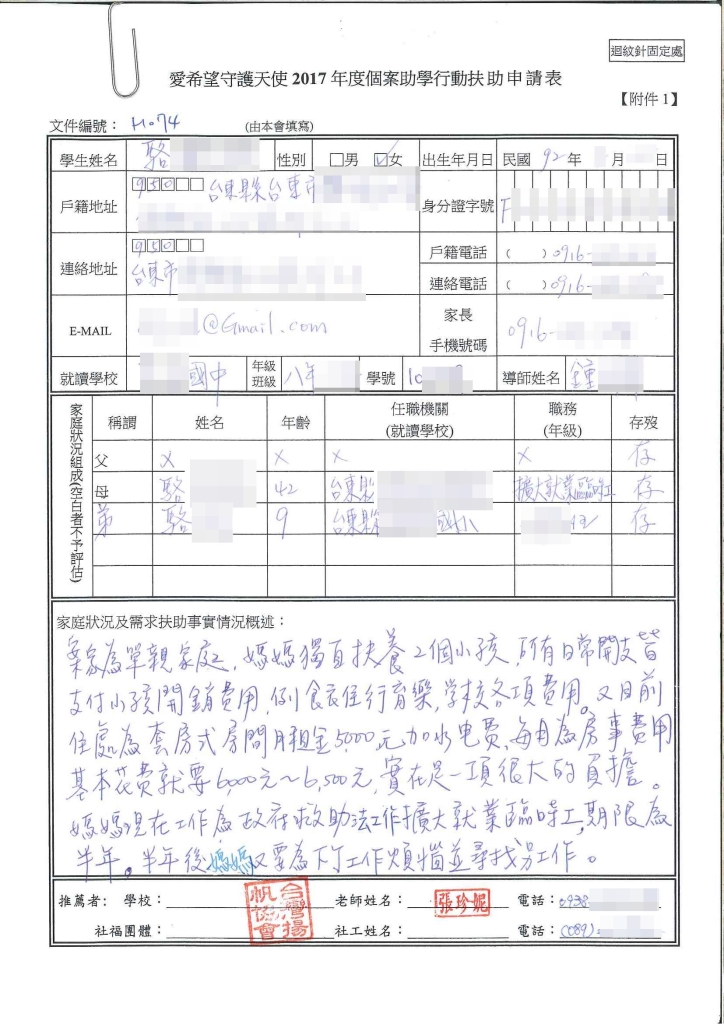 迴紋針固定處
愛希望守護天使 2017 年度個案助學行動扶助申請表
【附件 1】
文件編號： H074 (由本會填寫)
學生姓名 駱 性別 □男 ☑女 出生年月日 民國 92 年 月 日
戶籍地址 950□□ 台東縣台東市 身分證字號 F
連絡地址 950□□ 台東市 戶籍電話 ( ) 0916-
連絡電話 ( ) 0916-
E-MAIL @Gmail.com 家長手機號碼 0916-
就讀學校 國中 年級班級 八年 學號 10 導師姓名 鍾
家庭狀況組成(空白者不予評估)
稱謂 姓名 年齡 任職機關(就讀學校) 職務(年級) 存歿
父 X X X X 存
母 駱 42 台東縣 擴大就業臨時工 存
弟 駱 9 台東縣 國小 存
家庭狀況及需求扶助事實情況概述：
案家為單親家庭，媽媽獨自扶養2個小孩，所有日常開支皆
支付小孩開銷費用，例食衣住行育樂，学校各項費用。又目前
住處為套房式房間月租金5000元加水电費，每月為房事費用
基本花費就要6,000元～6,500元，實在是一項很大的負擔。
媽媽現在工作為政府救助法工作擴大就業臨時工，期限為
半年。半年後媽媽又要為下個工作煩惱並尋找另工作。
推薦者： 學校： 老師姓名： 張珍妮 電話：0938
社福團體： 台灣揚帆協會 社工姓名： 電話：(089)